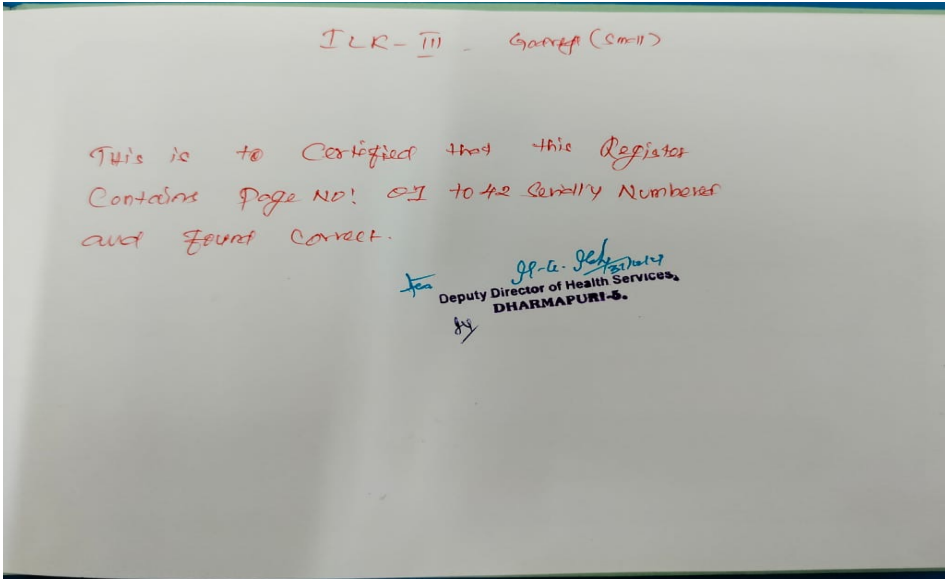 ILR - III - (Small)
THis is to Certified that this Register
Contains Page No: 01 to 42 Serially Numbered
and Found Correct.
Deputy Director of Health Services,
DHARMAPURI-5.